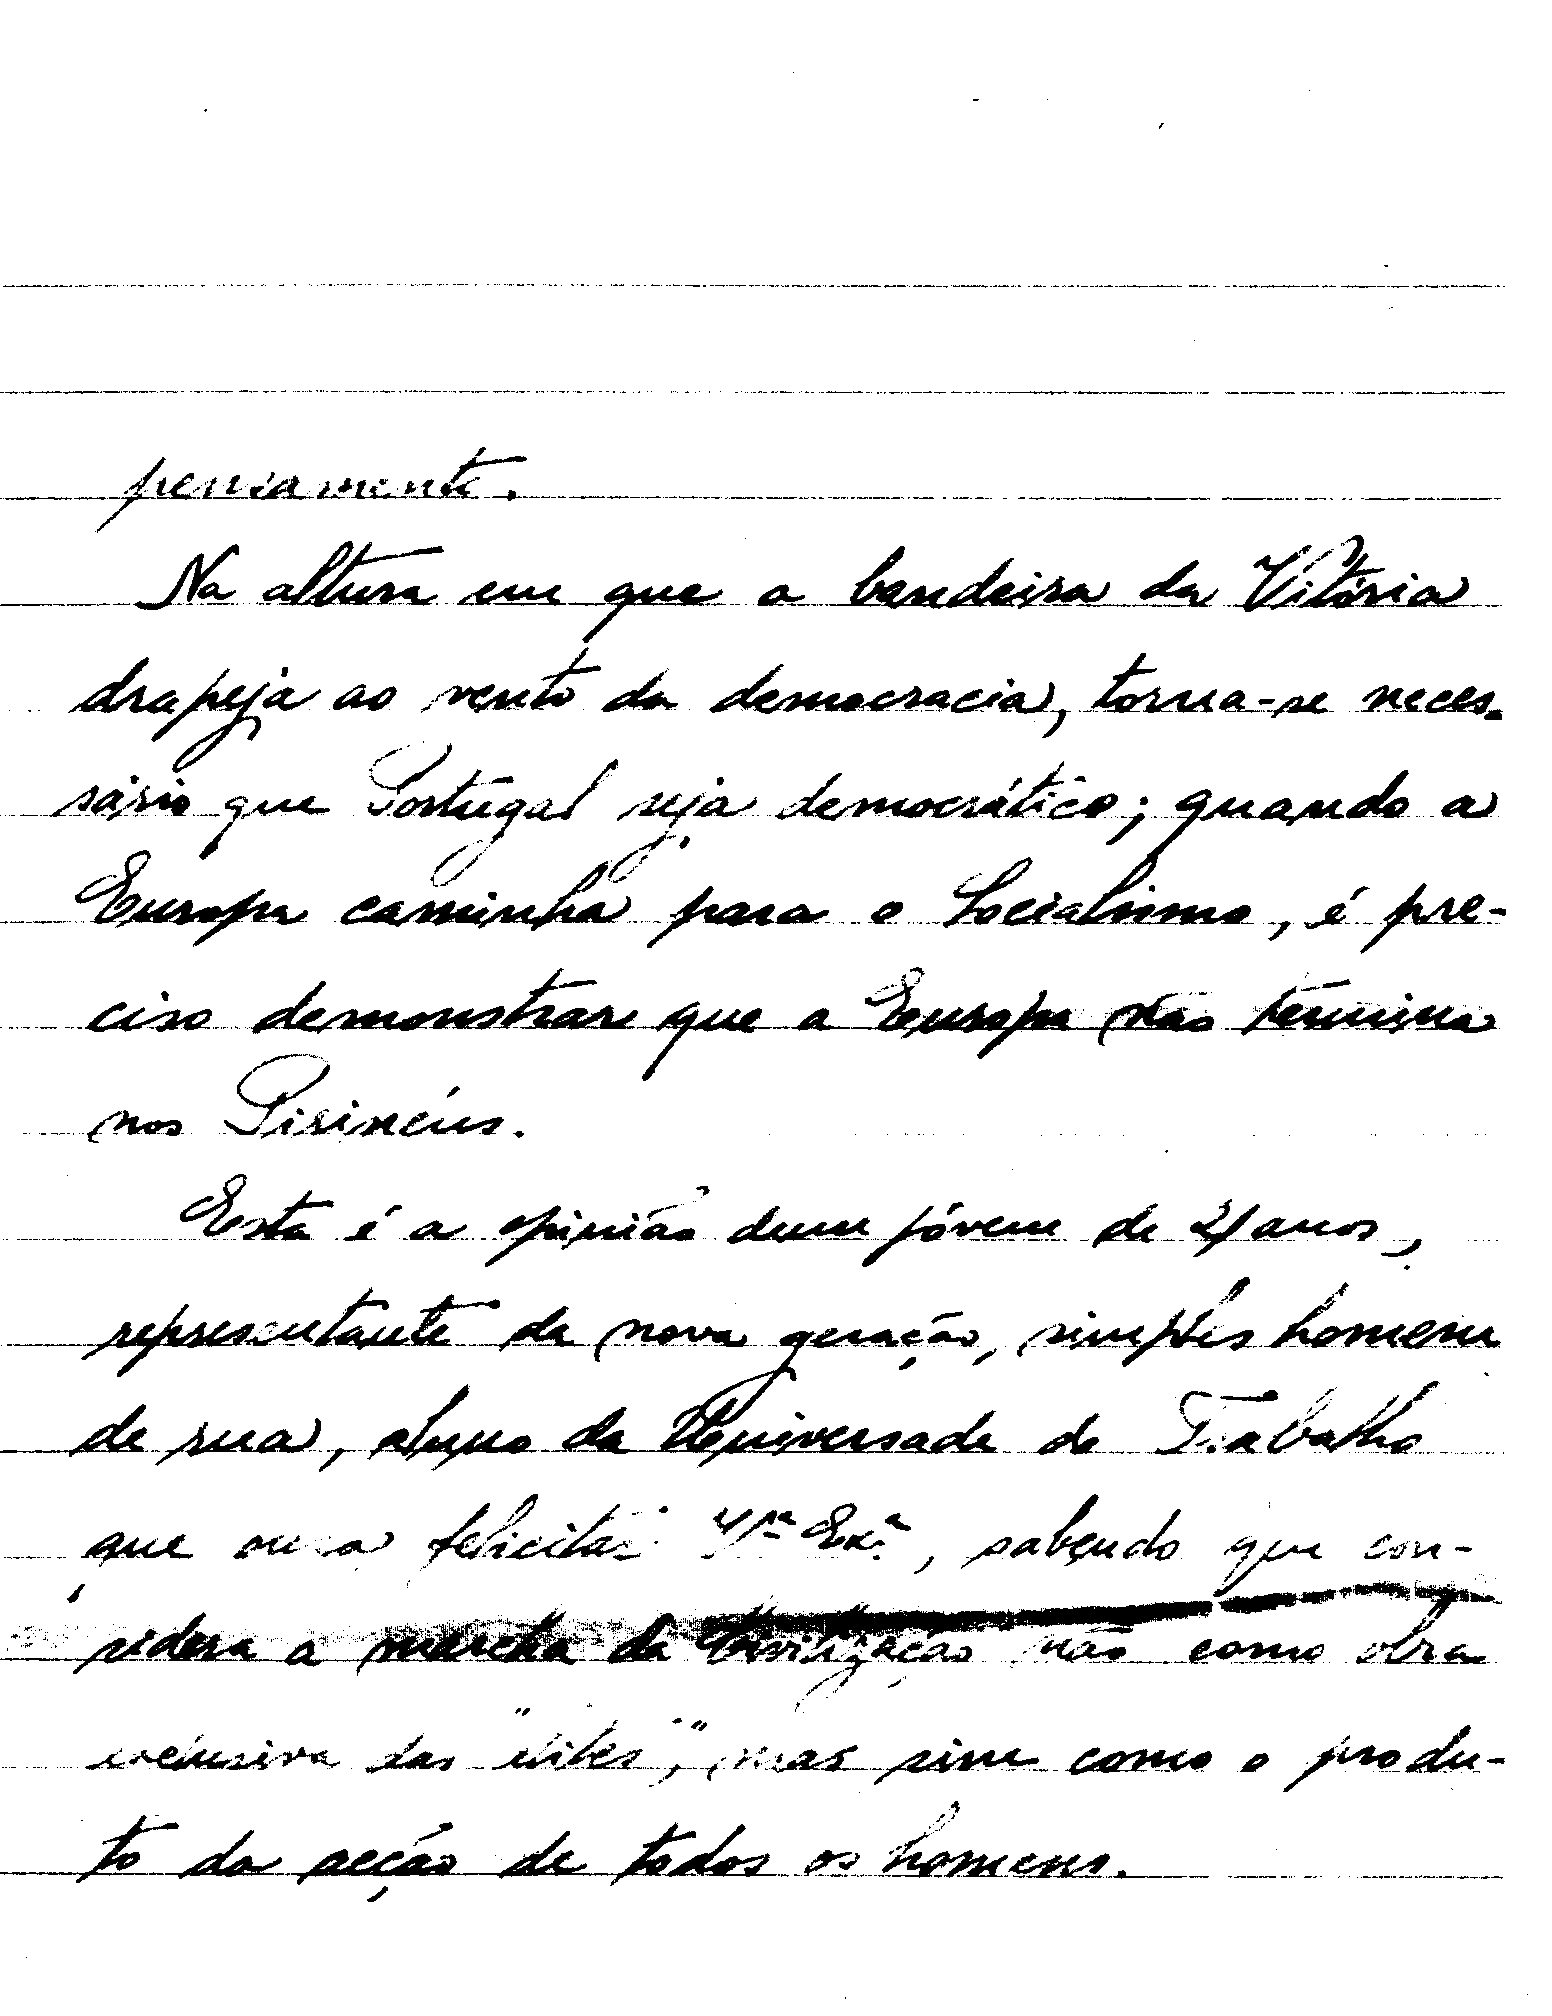 pensamento.
Na altura em que a bandeira da Vitória
drapeja ao vento da democracia, torna-se neces-
sário que Portugal seja democrático; quando a
Europa caminha para o Socialismo, é pre-
ciso demonstrar que a Europa não termina
nos Pirinéus.
Esta é a opinião dum jóvem de 21 anos,
representante da nova geração, simples homem
de rua, aluno da Universade do Trabalho
que ousa felicitar V.ª Ex.ª, sabendo que con-
sidera a marcha da Civilização não como obra
exclusiva das "élites", mas sim como o produ-
to da acção de todos os homens.